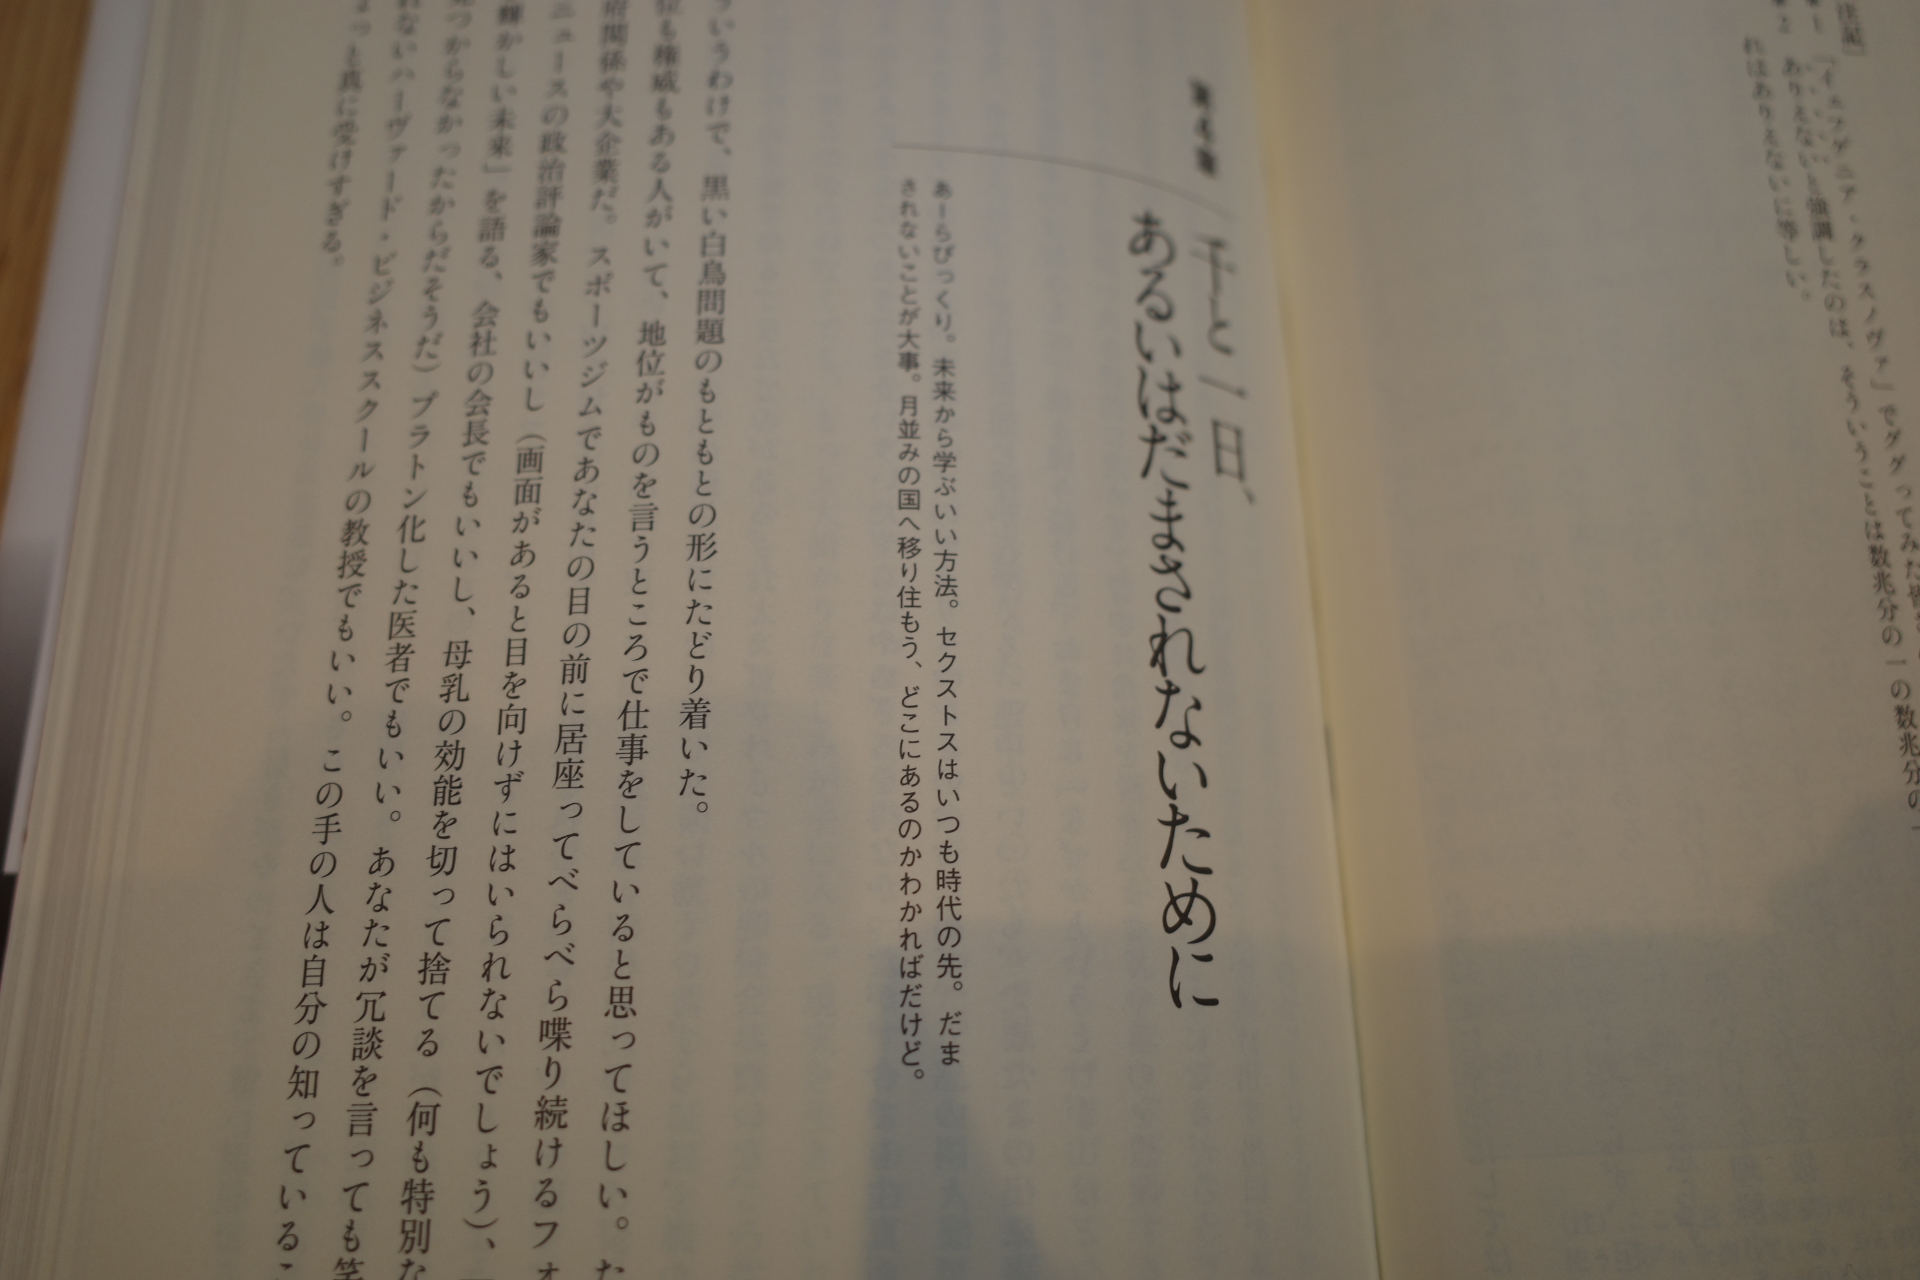 注記]
「イェフゲニア・クラスノヴァ」でググってみた皆さ
2　ありえないと強調したのは、そういうことは数兆分の一の数兆分の一
れはありえないに等しい。
第4章
千と一日、
あるいはだまされないために
あーらびっくり。未来から学ぶいい方法。セクストスはいつも時代の先。だま
されないことが大事。月並みの国へ移り住もう、どこにあるのかわかればだけど。
ういうわけで、黒い白鳥問題のもともとの形にたどり着いた。
位も権威もある人がいて、地位がものを言うところで仕事をしていると思ってほしい。た
府関係や大企業だ。スポーツジムであなたの目の前に居座ってべらべら喋り続けるフォ
ニュースの政治評論家でもいいし（画面があると目を向けずにはいられないでしょう）、
輝かしい未来」を語る、会社の会長でもいいし、母乳の効能を切って捨てる（何も特別な
見つからなかったからだそうだ）プラトン化した医者でもいい。あなたが冗談を言っても笑
れないハーヴァード・ビジネススクールの教授でもいい。この手の人は自分の知っているこ
ょっと真に受けすぎる。